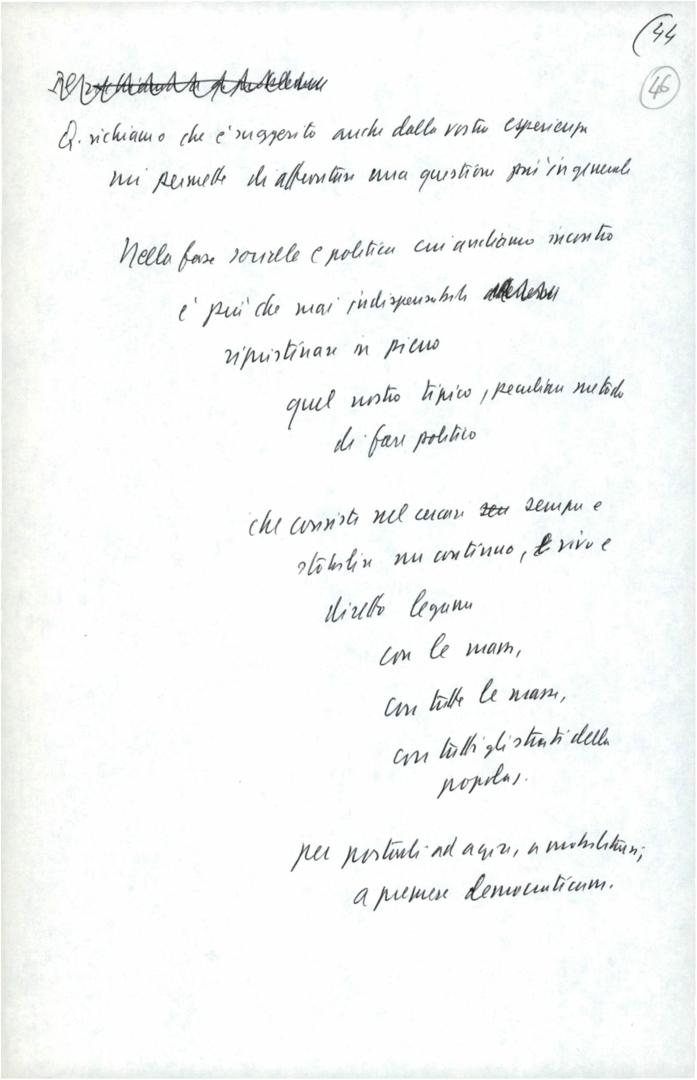 (44
46
Q. richiamo che è suggerito anche dalla vostra esperienza
mi permette di affrontare una questione più in generale
Nella fase sociale e politica cui andiamo incontro
è più che mai indispensabile
ripristinare in pieno
quel nostro tipico, peculiare metodo
di fare politica
che consiste nel cercare sem sempre e
stabilire un continuo, vivo e
diretto legame
con le masse,
con tutte le masse,
con tutti gli strati della
popolaz.
per portarli ad agire, a mobilitarsi,
a premere democraticam.